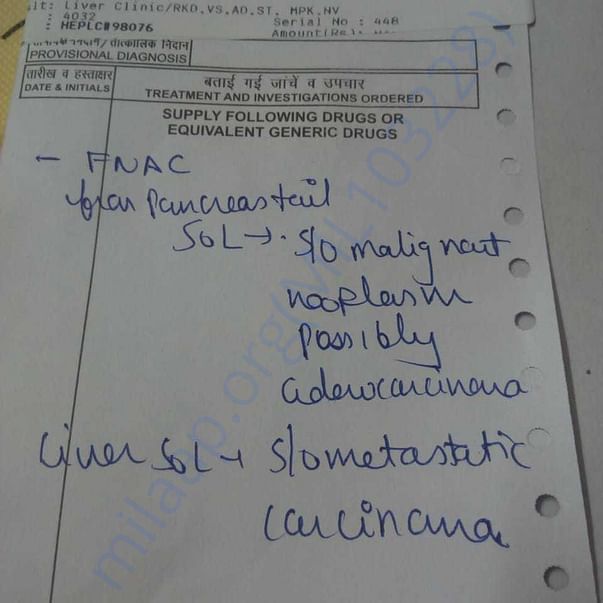 lt: Liver Clinic/RKD,VS,AD,ST, MPK,NV
: 4032
Serial No : 448
: HEPLC#98076
Amount(Rs):
/ तात्कालिक निदान
PROVISIONAL DIAGNOSIS
तारीख व हस्ताक्षर
DATE & INITIALS
बताई गई जांचें व उपचार
TREATMENT AND INVESTIGATIONS ORDERED
SUPPLY FOLLOWING DRUGS OR
EQUIVALENT GENERIC DRUGS
- FNAC
from Pancreas tail
SOL → S/o malignant
neoplasm
possibly
adenocarcinoma
Liver SOL → S/o metastatic
carcinoma
milaap.org(MIL1032228)